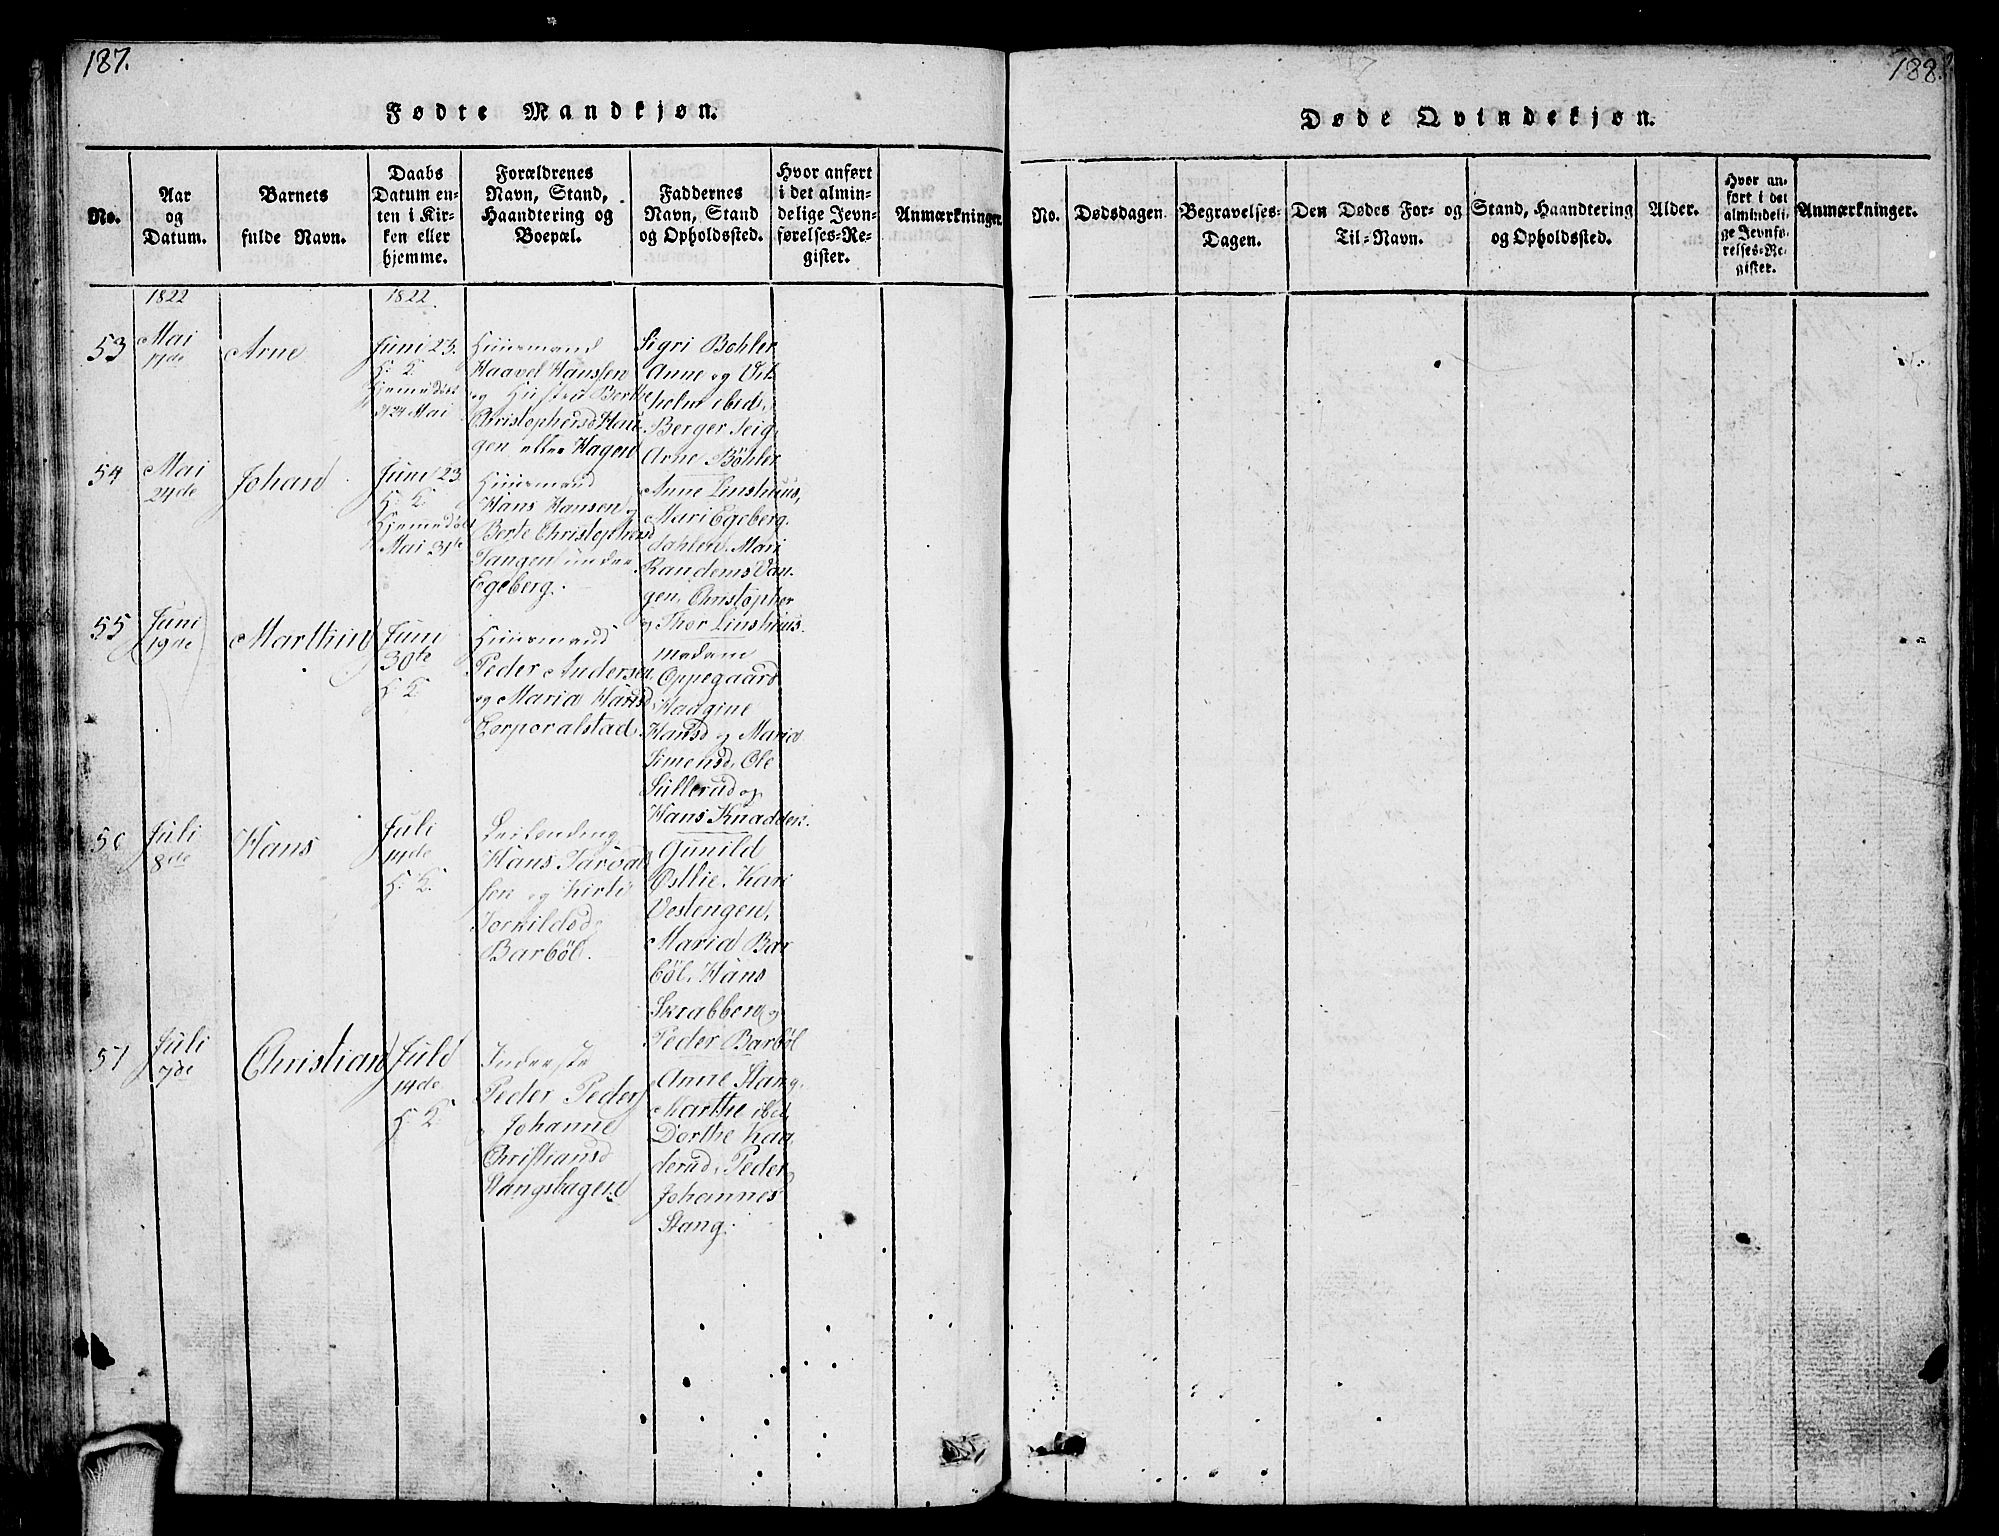 187.
Fødte Mandkjøn.
No.
Aar
og
Datum.
Barnets
fulde Navn.
Daabs
Datum en-
ten i Kir-
ken eller
hjemme.
Forældrenes
Navn, Stand,
Haandtering og
Boepæl.
Faddernes
Navn, Stand
og Opholdssted.
Hvor anført
i det almin-
delige Jevn-
førelses-Re-
gister.
Anmærkninger.
1822
1822.
53
Mai
Arne
Juni 23.
H. K.
Hjemmedøbt
d 24 Mai
Huusmand
Haavel Hanssen
og Hustru Berthe
Christophersd Hau
gen eller Hagen
Sigri Bøhler
Anne og Vil
holm ibid,
Berger Teig,
Arne Bøhler
54
Mai
24de
Johan
Juni 23
H. K.
Hjemmedøbt
Mai 31te
Huusmand
Hans Hansen og
Berte Christophersd
Tangen under
Egeberg.
Anne Linshuus,
Mari Egeberg.
dahlen, Mari
Randems Van-
gen, Christopher
og Thor Linshuus.
55
Juni
19de
Marthin
Juni
30te
H. K.
Huusmand
Peder Andersen
og Maria Hansd
Corporalstad
Madam
Oppegaard
Haagine
Hansd og Maria
Simensd, Ole
Sullerud og
Hans Knadden.
56
Juli
8de
Hans
Juli
14de
H. K.
Leilending
Hans Tarval
sen og Kirsti
Torkildsd
Barbøl.
Gunild
Østlie, Kari
Vestengen,
Maria Bar
bøl, Hans
Skrabben og
Peder Barbøl
57
Juli
7de
Christian
Juli
14de
H. K.
Inderste
Peder Peders
Johanne
Christiansd
Stangshagen
Anne Stang,
Marthe ibid,
Dorthe Kaa
derud, Peder
Johannes
Stang.
188.
Døde Qvindekjøn.
No.
Dødsdagen.
Begravelses-
Dagen.
Den Dødes For- og
Til-Navn.
Stand, Haandtering
og Opholdssted.
Alder.
Hvor an-
ført i det
almindeli-
ge Jevnfø-
relses-Re-
gister.
Anmærkninger.